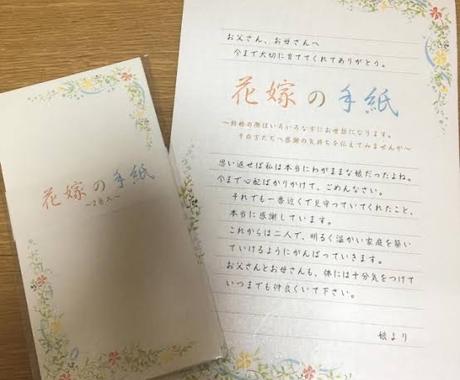 花嫁の手紙
お父さん、お母さんへ
今まで大切に育ててくれてありがとう。
花嫁の手紙
～結婚の際はいろいろな方にお世話になります。
その方たちへ感謝の気持ちを伝えてみませんか～
思い返せば私は本当にわがままな娘だったよね。
今まで心配ばかりかけて、ごめんなさい。
それでも一番近くで見守っていてくれたこと、
本当に感謝しています。
これからは二人で、明るく温かい家庭を築い
ていけるようにがんばっていきます。
お父さんとお母さんも、体には十分気をつけて
いつまでも仲良くいて下さい。
娘より